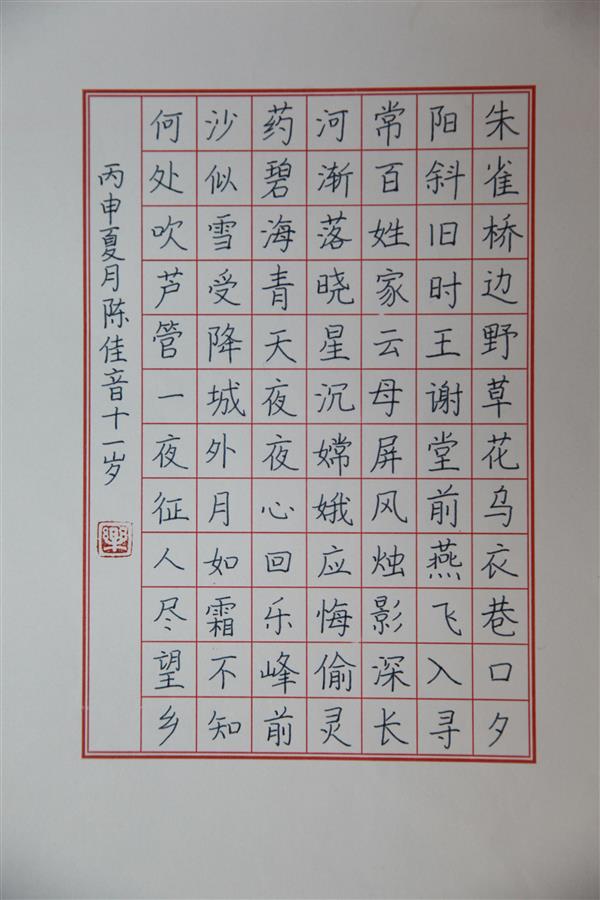 朱雀桥边野草花乌衣巷口夕
阳斜旧时王谢堂前燕飞入寻
常百姓家云母屏风烛影深长
河渐落晓星沉嫦娥应悔偷灵
药碧海青天夜夜心回乐峰前
沙似雪受降城外月如霜不知
何处吹芦管一夜征人尽望乡
丙申夏月陈佳音十一岁